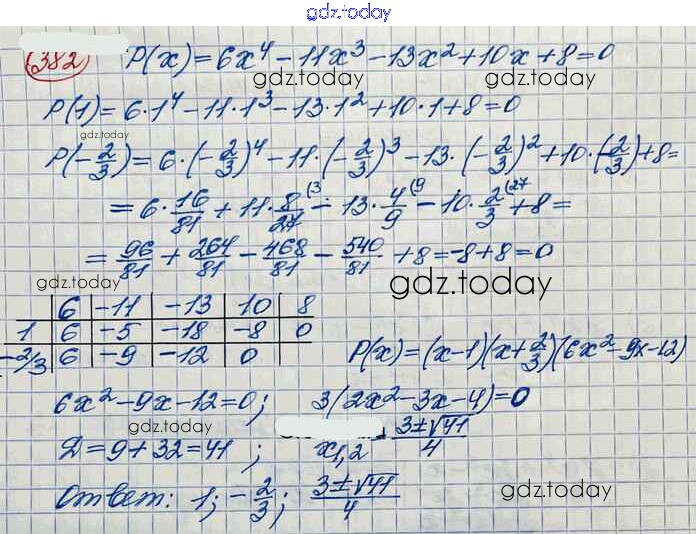 gdz.today
382 P(x) = 6x⁴ - 11x³ - 13x² + 10x + 8 = 0
gdz.today gdz.today
P(1) = 6·1⁴ - 11·1³ - 13·1² + 10·1 + 8 = 0
gdz.today
P(-2/3) = 6·(-2/3)⁴ - 11·(-2/3)³ - 13·(-2/3)² + 10·(-2/3) + 8 =
= 6·16/81 + 11·8/27 (3 - 13·4/9 (9 - 10·2/3 (27 + 8 =
= 96/81 + 264/81 - 468/81 - 540/81 + 8 = -8 + 8 = 0
gdz.today gdz.today
6 | -11 | -13 | 10 | 8
1 | 6 | -5 | -18 | -8 | 0
-2/3 | 6 | -9 | -12 | 0
P(x) = (x-1)(x+2/3)(6x² - 9x - 12)
6x² - 9x - 12 = 0; 3(2x² - 3x - 4) = 0
Д = 9 + 32 = 41; x₁,₂ 3±√41/4
Ответ: 1; -2/3; 3±√41/4
gdz.today